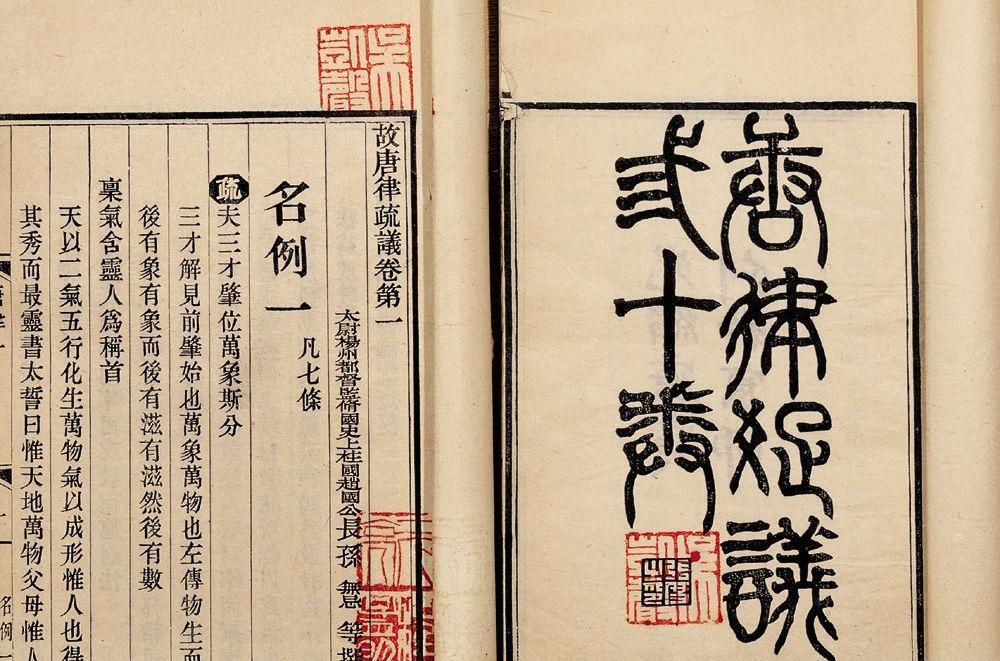 唐律疏議
弎十卷
吳凱聲
故唐律疏議卷第一
太尉楊州都督監脩國史上柱國趙國公長孫無忌等撰
名例一 凡七條
疏夫三才肇位萬象斯分
三才解見前肇始也萬象萬物也左傳物生而
後有象有象而後有滋有滋然後有數
稟氣含靈人爲稱首
天以二氣五行化生萬物氣以成形惟人也得
其秀而最靈書太誓曰惟天地萬物父母惟人
名例一